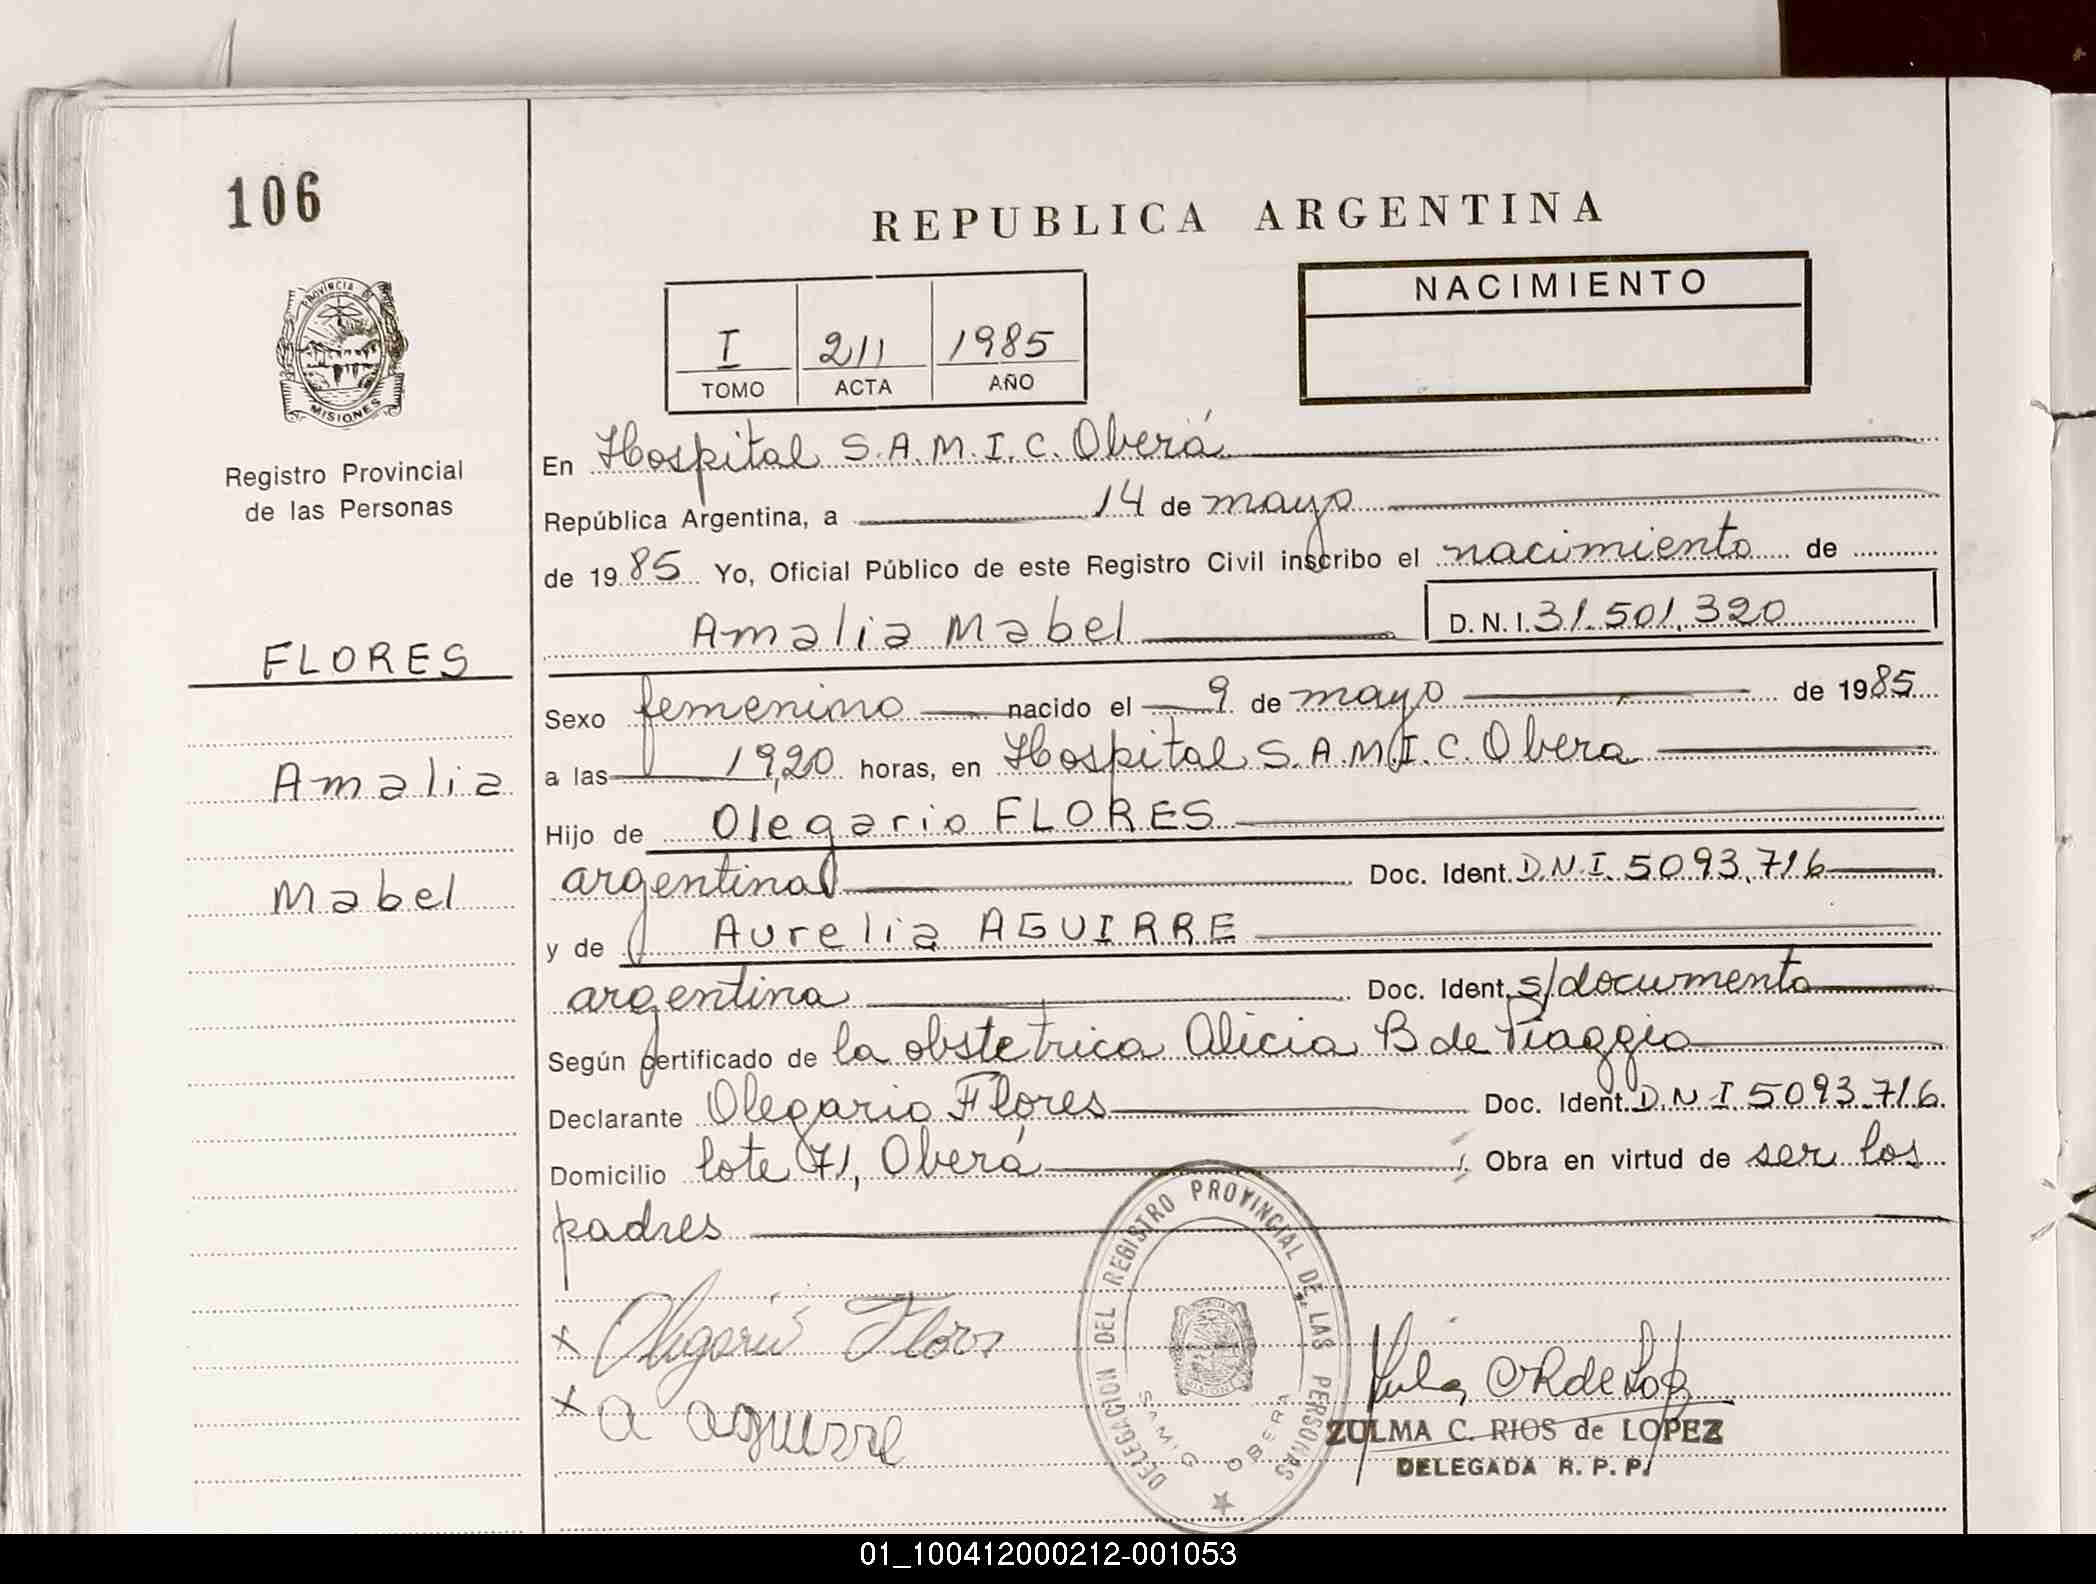 106
REPUBLICA ARGENTINA
PROVINCIA DE
MISIONES
NACIMIENTO
I 211 1985
TOMO ACTA AÑO
Registro Provincial
de las Personas
En Hospital S.A.M.I.C. Oberá
República Argentina, a 14 de mayo
de 1985 Yo, Oficial Público de este Registro Civil inscribo el nacimiento de
Amalia Mabel D.N.I. 31.501.320
FLORES
Amalia
Mabel
Sexo femenino nacido el 9 de mayo de 1985
a las 19,20 horas, en Hospital S.A.M.I.C. Obera
Hijo de Olegario FLORES
argentina Doc. Ident. D.N.I. 5093.716
y de Aurelia AGUIRRE
argentina Doc. Ident. s/documento
Según certificado de la obstetrica Alicia B de Piaggio
Declarante Olegario Flores Doc. Ident. D.N.I 5093.716
Domicilio lote 71, Oberá Obra en virtud de ser los
padres
DELEGACION DEL REGISTRO PROVINCIAL DE LAS PERSONAS
SAMIC OBERA
x Olegario Flores
x a aguirre
ZULMA C. RIOS de LOPEZ
DELEGADA R. P. P.
01_100412000212-001053